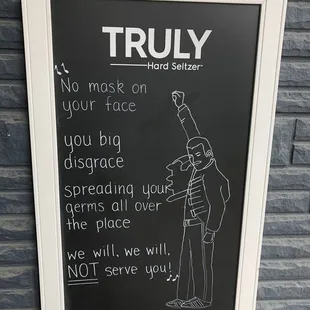 TRULY
Hard Seltzer
No mask on
your face
you big
disgrace
spreading your
germs all over
the place
we will, we will,
NOT serve you!